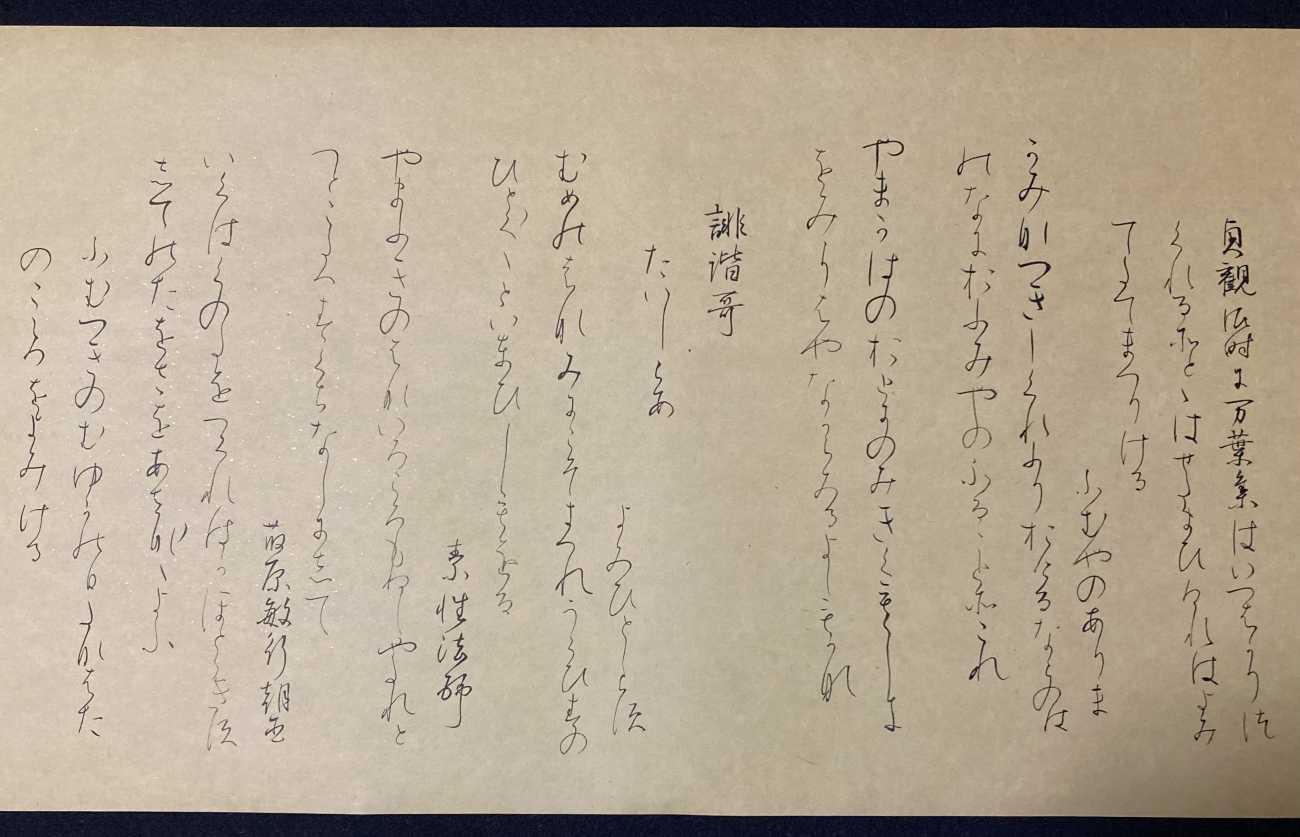 貞観御時に万葉集はいつはかりつ
くれるそとゝはせたまひけれはよみ
てたてまつりける
ふむやのありま
かみなつきしくれふりおけるならのは
のなにおふみやのふることそこれ
やまかはのおとにのみきくもゝしき
をみをはやなからみるよしもかな
誹諧哥
たいしらす
よみひとしらす
むめのはなみにこそきつれうくひすの
ひとくゝといとひしもをる
素性法師
やまふきのはないろころもぬしやたれと
へとこたへすくちなしにして
藤原敏行朝臣
いくはくのたをつくれはかほとゝきす
してのたをさをあさなゝよふ
ふむつきのむゆかの日たなはた
のこゝろをよみける